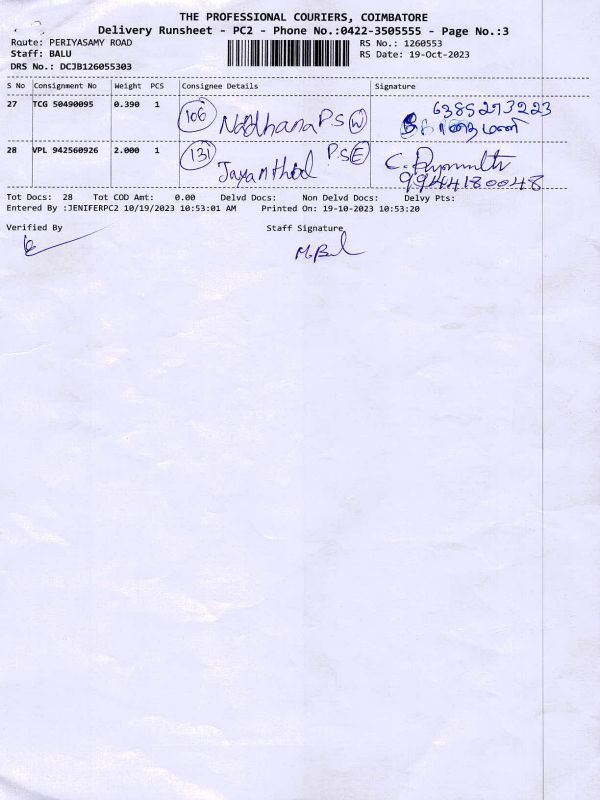 THE PROFESSIONAL COURIERS, COIMBATORE
Delivery Runsheet - PC2 - Phone No.:0422-3505555 - Page No.:3
Route: PERIYASAMY ROAD RS No.: 1260553
Staff: BALU RS Date: 19-Oct-2023
DRS No.: DCJB126055303
S No Consignment No Weight PCS Consignee Details Signature
27 TCG 50490095 0.390 1 106 P.S W 6385273223
28 VPL 942560926 2.000 1 131 P.S E C.
9944180048
Tot Docs: 28 Tot COD Amt: 0.00 Delvd Docs: Non Delvd Docs: Delvy Pts:
Entered By :JENIFERPC2 10/19/2023 10:53:01 AM Printed On: 19-10-2023 10:53:20
Verified By Staff Signature